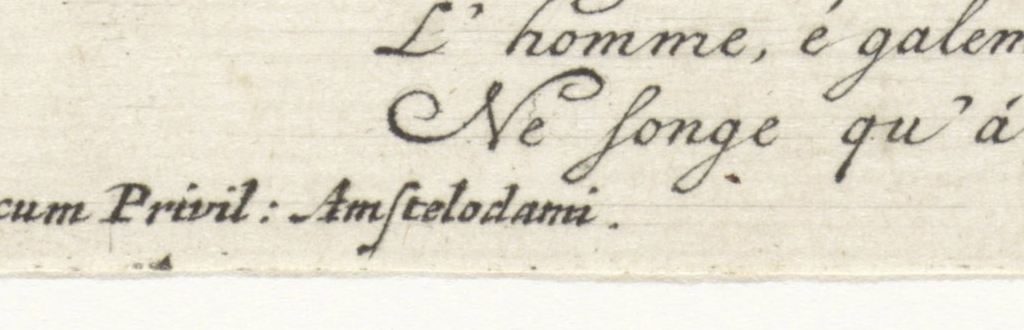 L'homme, é galem
Ne songe qu'á
cum Privil: Amstelodami.